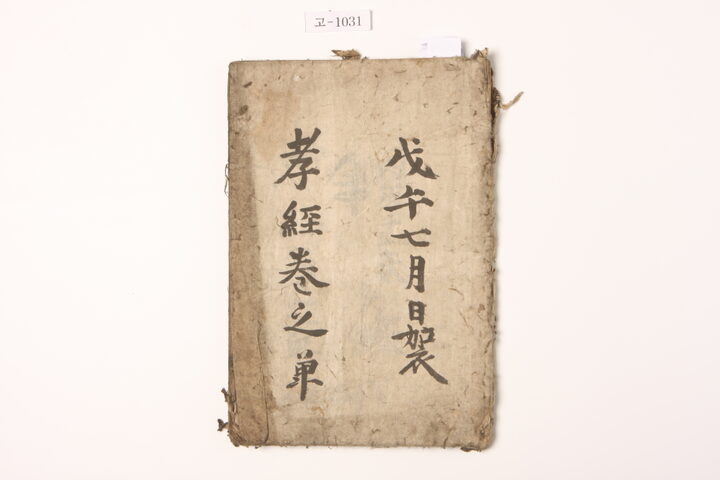 고-1031
戊午七月日袈
孝經卷之單